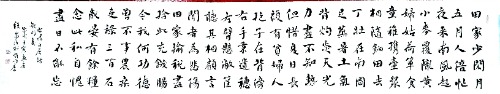 田家少閒月
五月人倍忙
夜來南風起
小麥覆隴黃
婦姑荷簞食
童稚攜壺漿
相隨餉田去
丁壯在南岡
足蒸暑土氣
背灼炎天光
力盡不知熱
但惜夏日長
復有貧婦人
抱子在其旁
右手秉遺穗
左臂懸敝筐
聽其相顧言
聞者為悲傷
田家輸稅盡
拾此充飢腸
今我何功德
曾不事農桑
吏祿三百石
歲晏有餘糧
念此私自愧
盡日不能忘